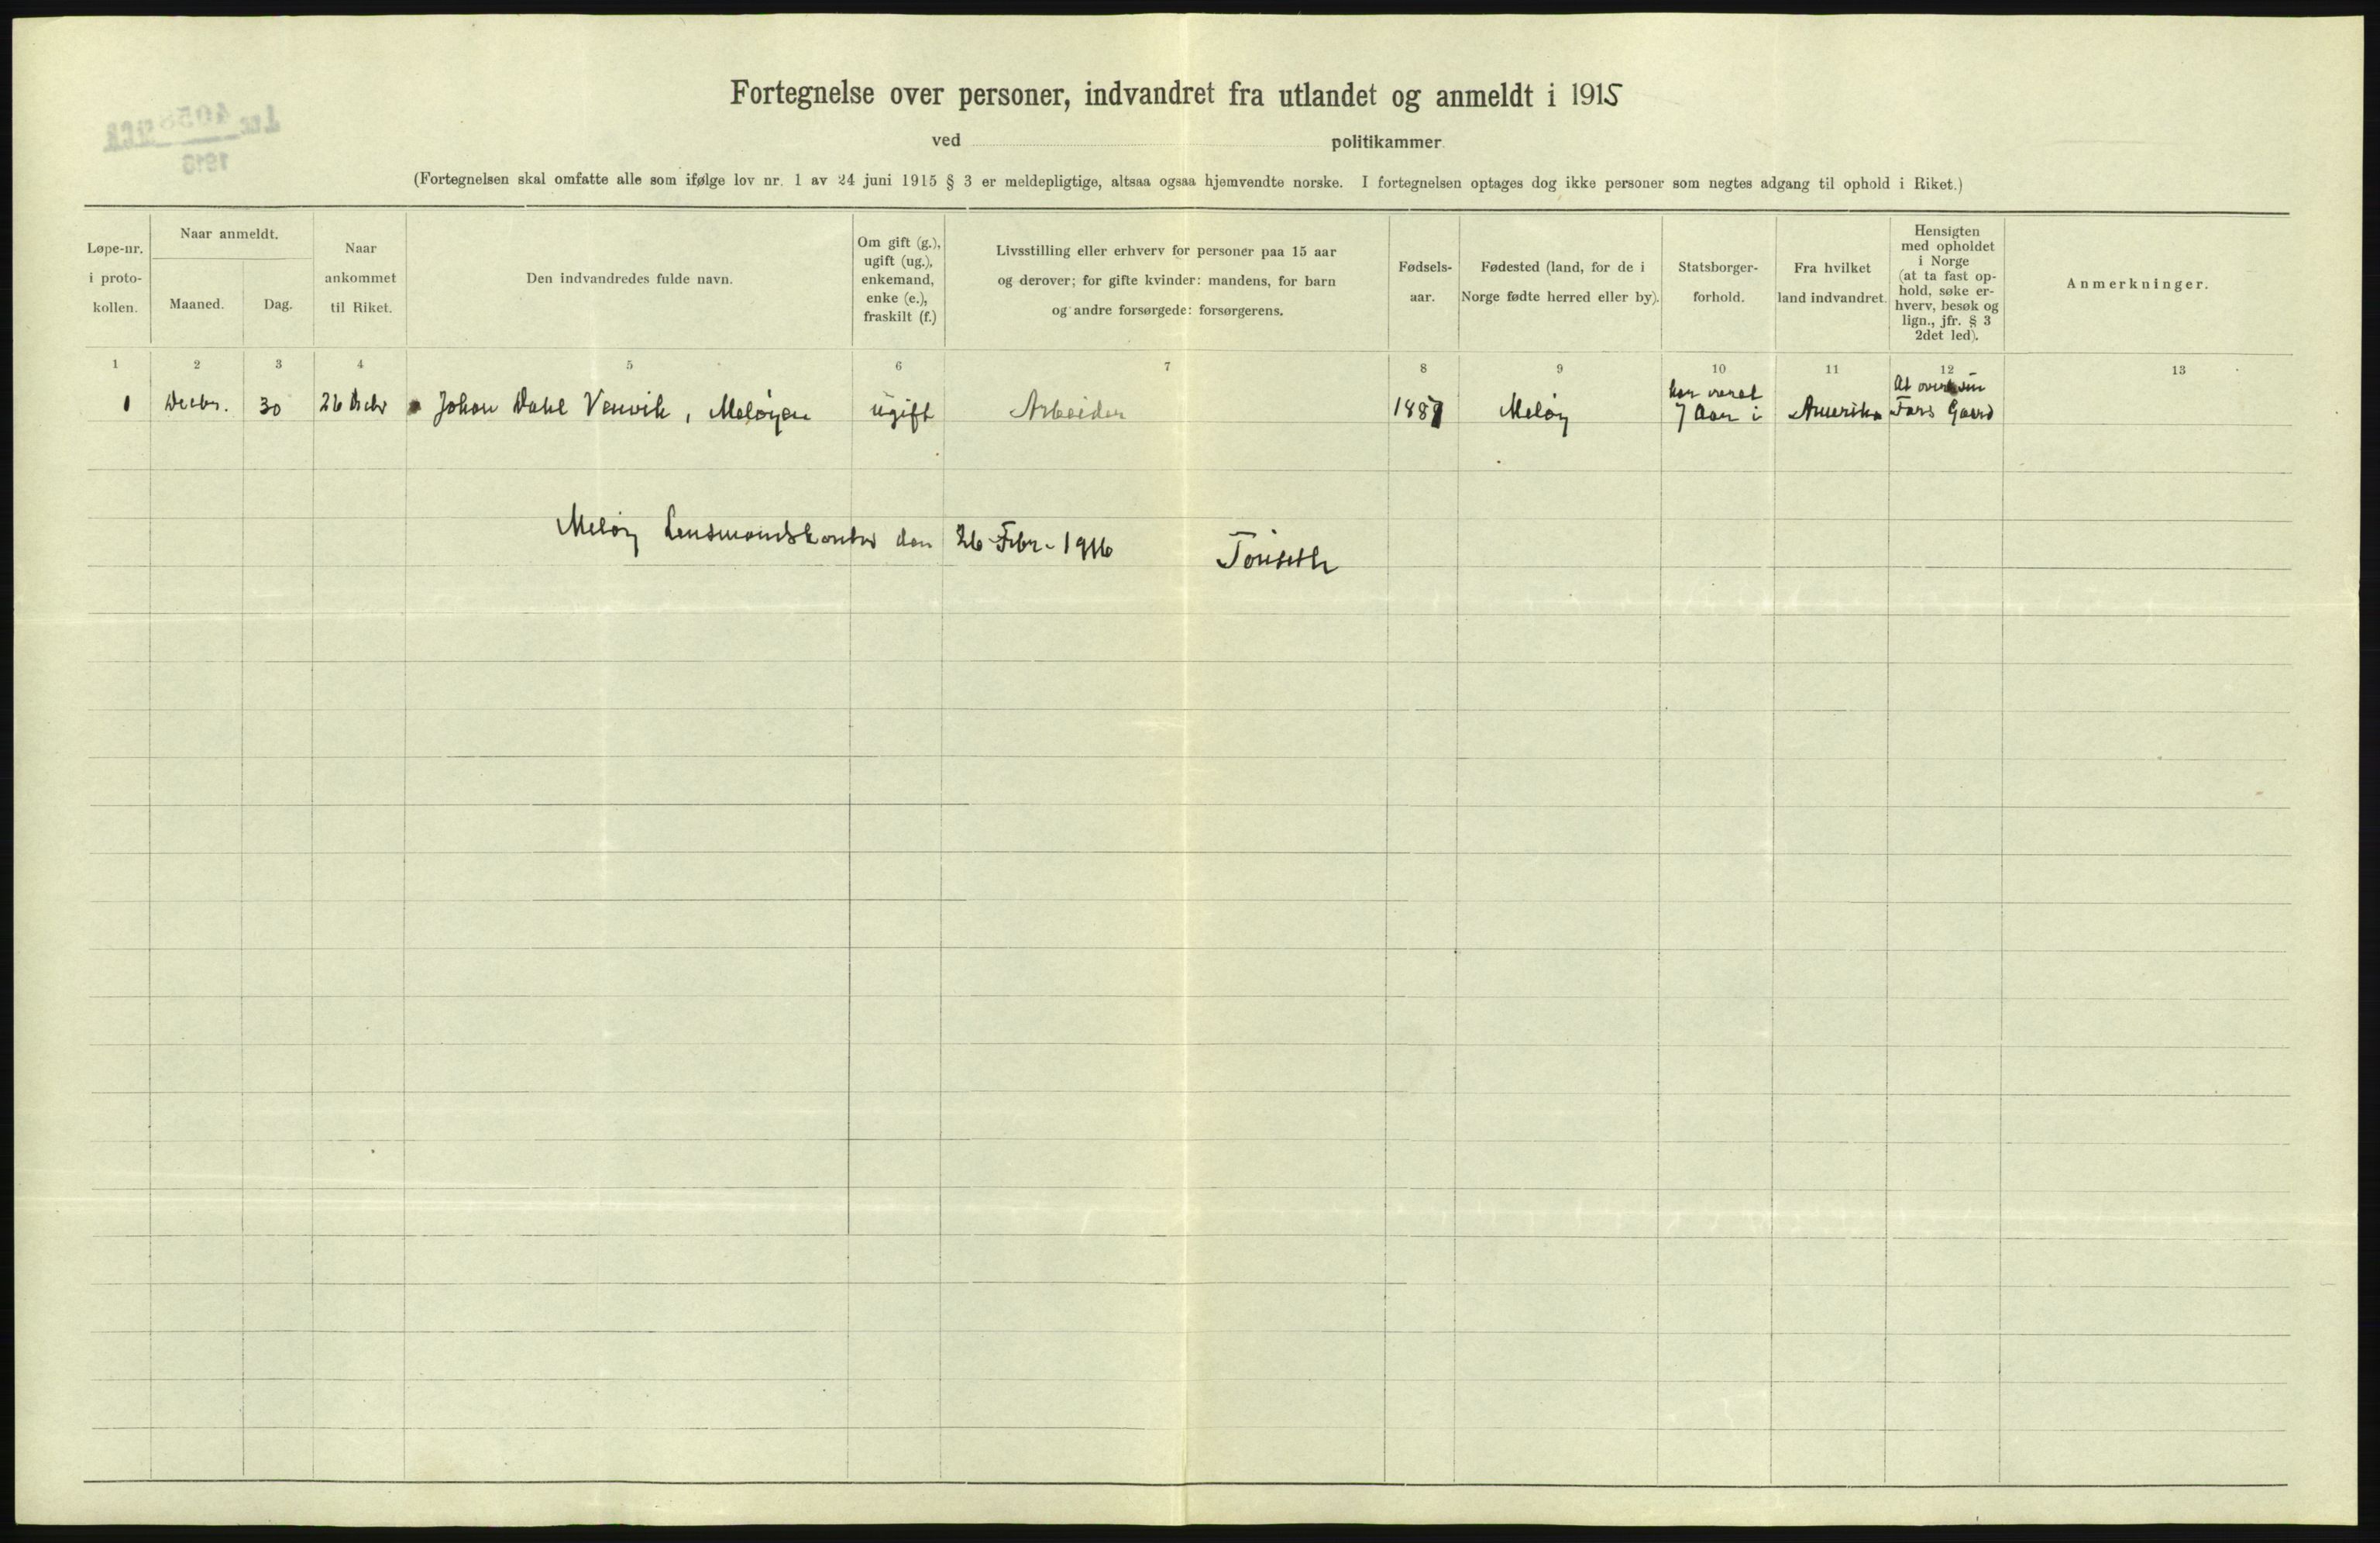 Fortegnelse over personer, indvandret fra utlandet og anmeldt i 1915
ved politikammer
(Fortegnelsen skal omfatte alle som ifølge lov nr. 1 av 24 juni 1915 § 3 er meldepligtige, altsaa ogsaa hjemvendte norske. I fortegnelsen optages dog ikke personer som negtes adgang til ophold i Riket.)
Løpe-nr. i proto- kollen.
Naar anmeldt.
Maaned.
Dag.
Naar ankommet til Riket.
Den indvandredes fulde navn.
Om gift (g.), ugift (ug.), enkemand, enke (e.), fraskilt (f.)
Livsstilling eller erhverv for personer paa 15 aar
og derover; for gifte kvinder: mandens, for barn
og andre forsørgede: forsørgerens.
Fødsels- aar.
Fødested (land, for de i
Norge fødte herred eller by).
Statsborger- forhold.
Fra hvilket
land indvandret.
Hensigten
med opholdet
i Norge
(at ta fast op-
hold, søke er-
hverv, besøk og
lign., jfr. § 3
2det led).
Anmerkninger.
1 2 3 4 5 6 7 8 9 10 11 12 13
1 Decbr. 30 26 Decbr Johan Dahl Venvik, Meløyen ugift Arbeider 188 Meløy har været 7 Aar i Amerika At Fars Gaard
Meløy Lensmandskontor den 26 Febr. 1916